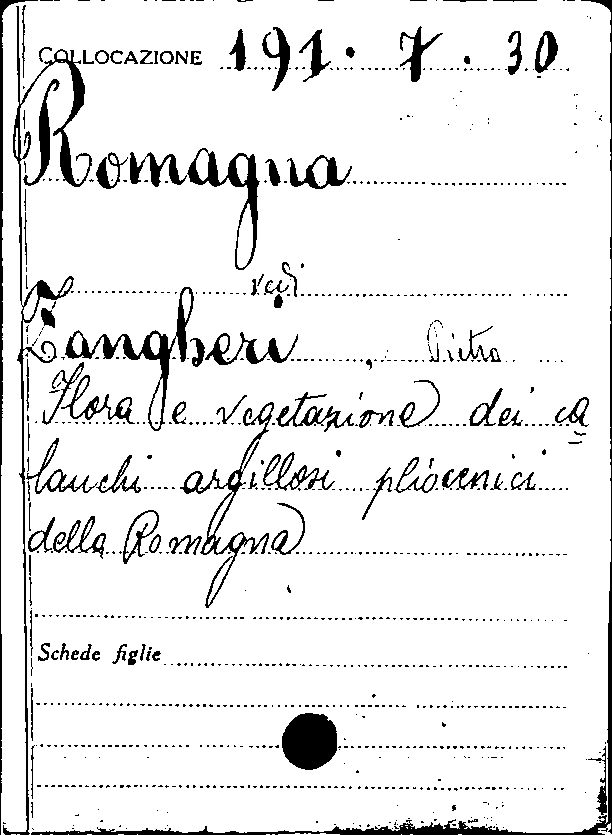 COLLOCAZIONE 191. 7. 30
Romagna
vedi
Zangheri, Pietro
Flora e vegetazione dei ca
lanchi argillosi pliocenici
della Romagna
Schede figlie